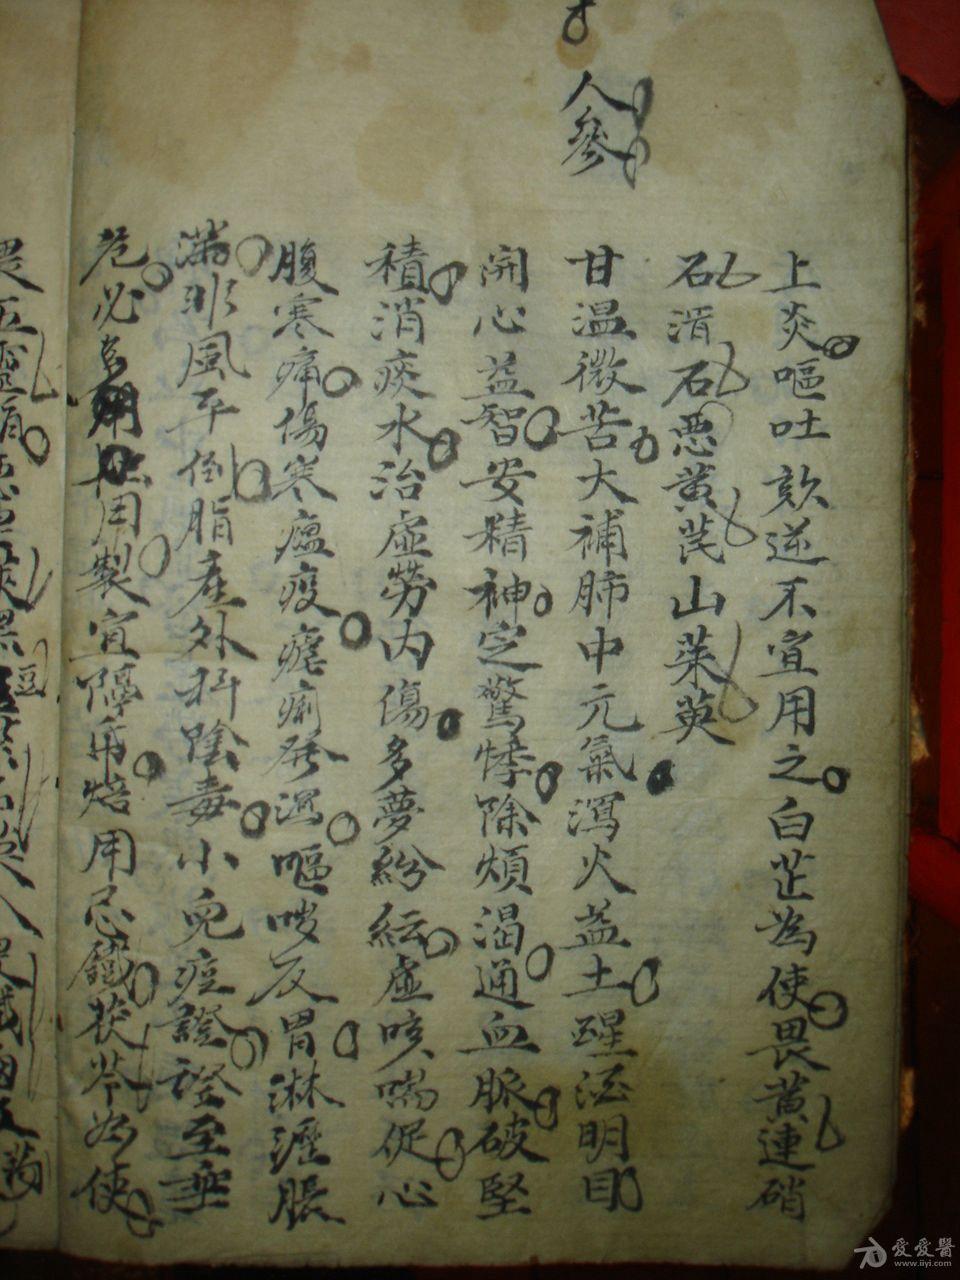 上炎嘔吐欬逆不宜用之白芷為使畏黃連硝
石滑石惡黃芪山茱萸
人參
甘溫微苦大補肺中元氣瀉火益土醒酒明目
開心益智安精神定驚悸除煩渴通血脈破堅
積消痰水治虛勞內傷多夢紛紜虛咳喘促心
腹寒痛傷寒瘟疫瘧痢發瀉嘔噦反胃淋瀝脹
滿非風卒倒脂產外科陰毒小兒痘證證至垂
危必用用製宜隔紙焙用忌鐵茯苓為使
畏五靈脂
愛愛醫
www.iiyi.com